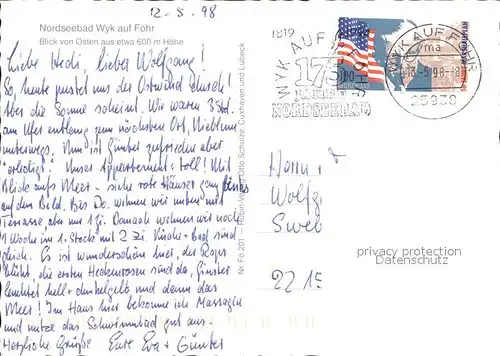 12.5.98
Nordseebad Wyk auf Föhr
Blick von Osten aus etwa 600 m Höhe
Liebe Hedi, lieber Wolfgang!
So, heute pustet uns der Ostwind durch!
Aber die Sonne scheint. Wir waren 3 Std.
am Ufer entlang zum nächsten Ort, Nieblum
unterwegs. Nun ist Günter zufrieden aber
"erledigt". Unser Appartement: toll! Mit
Blick aufs Meer - siehe rote Häuser ganz links
auf dem Bild. Bis Do. wohnen wir unten mit
Terrasse, aber nur 1 Zi. Danach wohnen wir noch
1 Woche im 1. Stock mit 2 Zi. Küche + Bad sind
gleich. Es ist wunderschön hier, der Raps
blüht, die ersten Heckenrosen sind da, Ginster
leuchtet hell + dunkelgelb und dann das
Meer! Im Haus hier bekomme ich Massagen
und nutze das Schwimmbad gut aus.
Herzliche Grüße Eure Eva + Günter
Nr. Fö 201 – Rubin-Verlag Otto Schulze, Cuxhaven und Lübeck
1819
WYK AUF FÖHR
175
JAHRE
NORDSEEBAD
WYK AUF FÖHR
ma
13.-5.98-18
25938
Herrn
Wolfg
Sweb
2215
privacy protection
Datenschutz